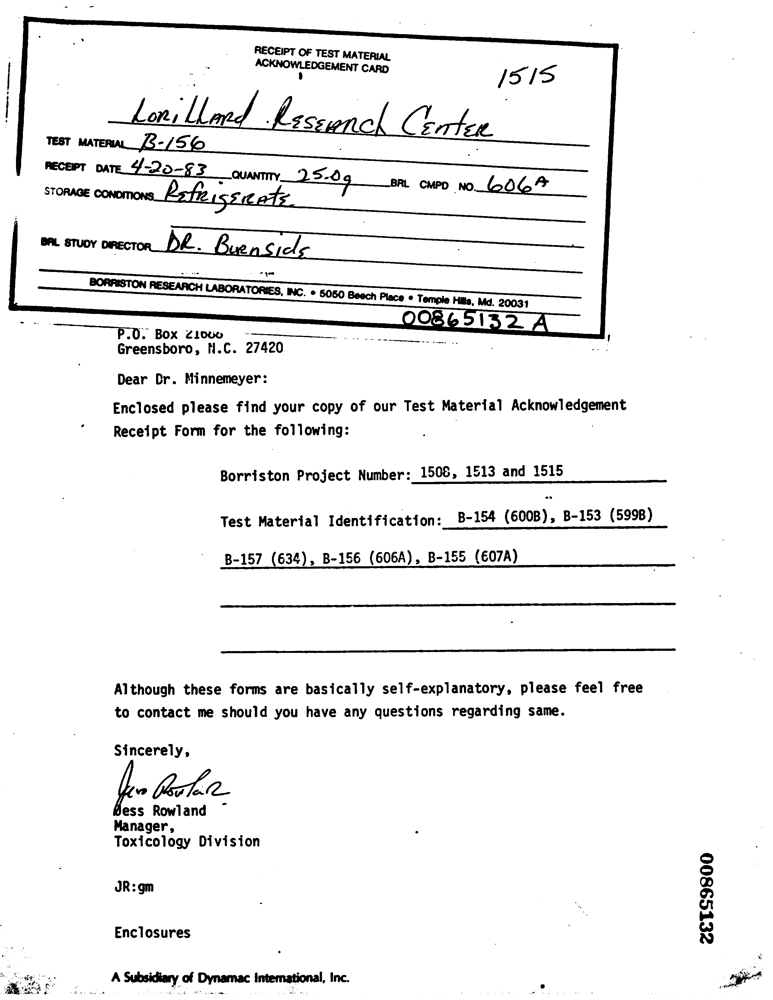 RECEIPT OF TEST MATERIAL
ACKNOWLEDGEMENT CARD
1515
Lorillard Research Center
TEST MATERIAL B-156
RECEIPT DATE 4-20-83 QUANTITY 25.0g BRL CMPD NO. 606A
STORAGE CONDITIONS Refrigerate
BRL STUDY DIRECTOR DR. Burnside
BORRISTON RESEARCH LABORATORIES, INC. • 5050 Beech Place • Temple Hills, Md. 20031
00865132 A
P.O. Box
Greensboro, N.C. 27420
Dear Dr. Minnemeyer:
Enclosed please find your copy of our Test Material Acknowledgement
Receipt Form for the following:
Borriston Project Number: 1508, 1513 and 1515
Test Material Identification: B-154 (600B), B-153 (599B)
B-157 (634), B-156 (606A), B-155 (607A)
Although these forms are basically self-explanatory, please feel free
to contact me should you have any questions regarding same.
Sincerely,
Jess Rowland
Manager,
Toxicology Division
JR:gm
Enclosures
A Subsidiary of Dynamac International, Inc.
00865132